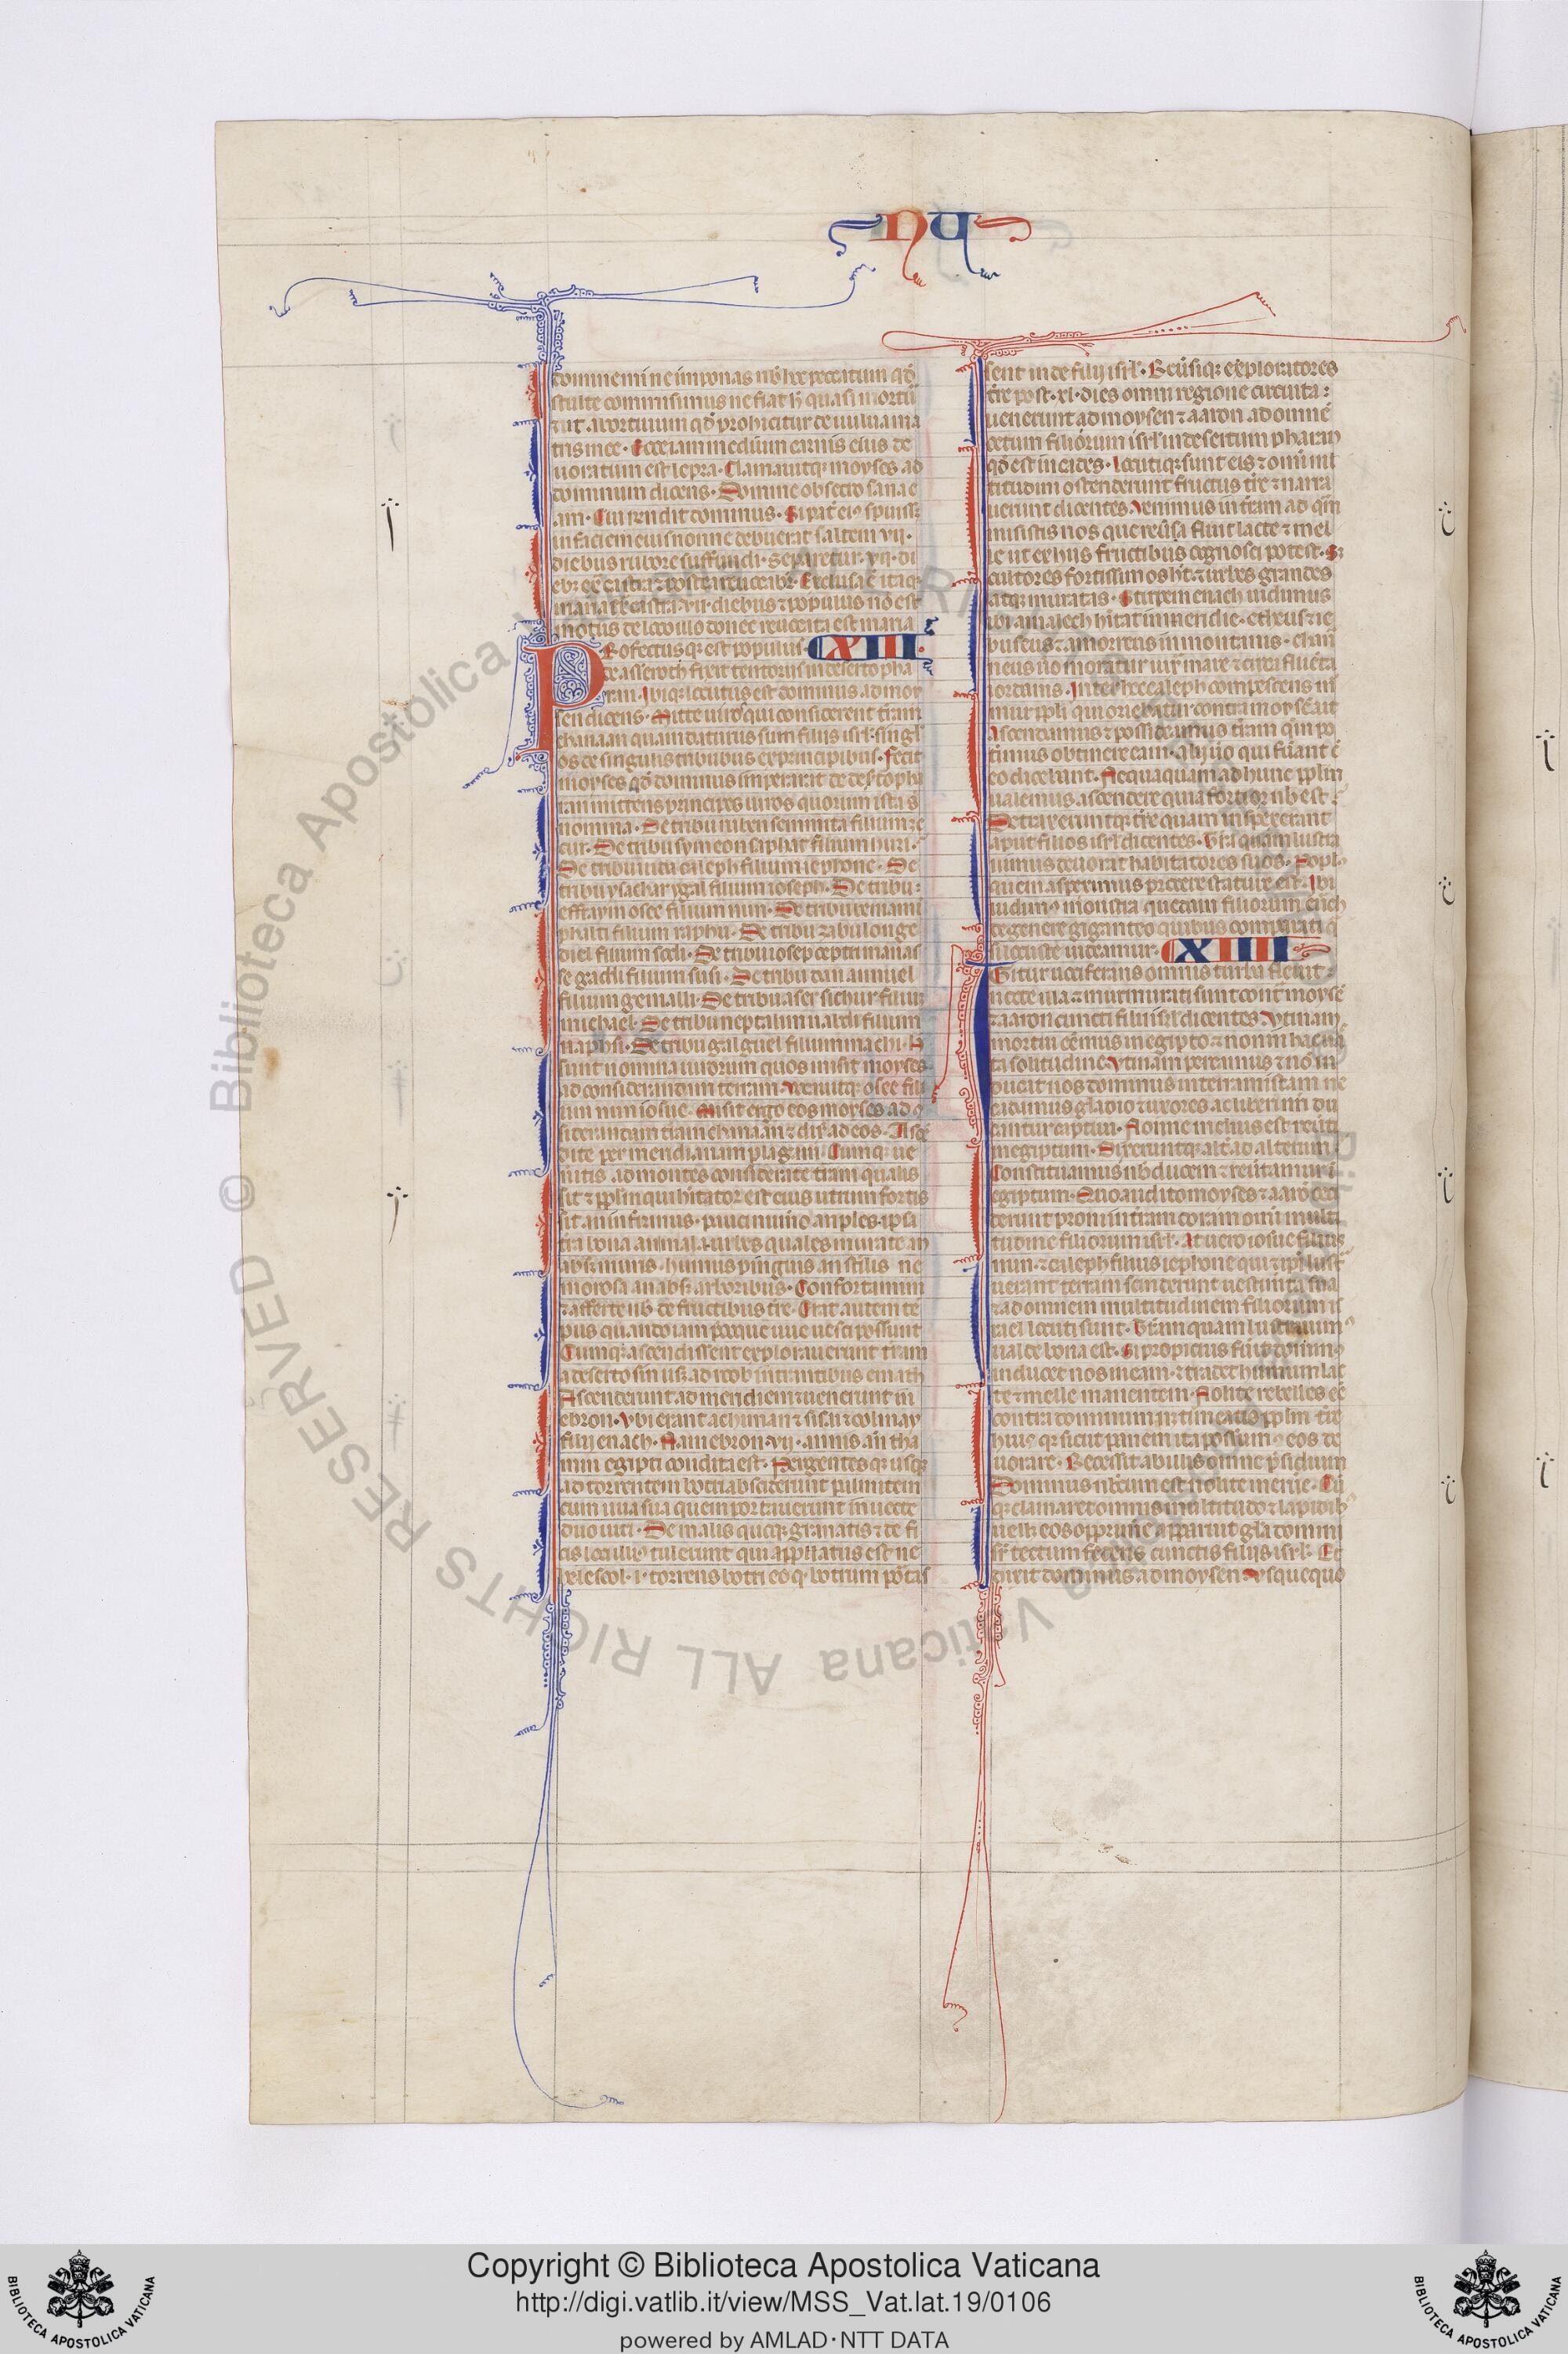 NU
domine mi ne imponas nob̅ hoc peccatum qd̅
stulte commisimus ne fiat h̅ quasi mortu̅
⁊ ut abortiuum qd̅ prohicitur de uulua ma
tris mee. Ecce iam medium carnis eius de
uoratum est lepra. Clamauitq; moyses ad
dominum dicens. Domine obsecro sana e
am. Cui rendit dominus. Si pat̅ ei᷒ spuiss;
in faciem eius nonne debuerat saltem .vii.
diebus rubore suffundi. Separetur .vii. di
eb; ex̅ castra ⁊ postea reuocabr̅. Exclusa e̅ itaq;
maria ex̅ castra .vii. diebus ⁊ populus no̅ est
motus de loco illo donec reuocata est maria
Profectusq; est populus XIII.
de asseroth fixit tentoriis in deserto pha
ran. Ibiq; locutus est dominus ad moy
sen dicens. Mitte uiros qui considerent t̅ram
chanaan quam daturus sum filiis isrl̅. singl̅
os de singulis tribubus ex principibus. Fecit
moyses qd̅ dominus imperarat de deserto pha
ran mittens principes uiros quorum ista s̅
nomina. De tribu ruben semmua filium ze
cur. De tribu symeon saphat filium huri.
De tribu iuda caleph filium iephone. De
tribu ysachar ygal filium ioseph. De tribu
effraym osee filium nun. De tribu beniami
phalti filium raphu. De tribu zabulon ge
diel filium sodi. De tribu iosep sceptri manas
se gaddi filium susi. De tribu dan amiel
filium gemalli. De tribu aser sthur filiu̅
michael. De tribu neptalim naabi filium
naphsi. De tribu gad guel filium machi. H̅
sunt nomina uirorum quos misit moyses
ad considerandam terram. Vocauitq; osee fili
um nun iosue. Misit ergo eos moyses ad co̅
siderandam t̅ram chanaan ⁊ dix̅ ad eos. Asce̅
dite per meridianam plagam. Cumq; ue
nitis ad montes considerate t̅ram qualis
sit ⁊ ppl̅m qui hitator est eius utrum fortis
sit an infirmus. pauci nu̅o an ples. ip̅a
t̅ra bona an mala. urbes quales murate an
absq; muris. humus pinguis an stilis ne
morosa an absq; arboribus. Confortamini
⁊ afferte nob̅ de fructibus t̅re. Erat autem te̅
pus quando iam p̅coque uue uesci possunt
Cumq; ascendissent explorauerunt t̅ram
a deserto sin usq; ad roob intrantibus emath
Ascenderunt ad meridiem ⁊ uenerunt in
ebron. Vbi erant achiman ⁊ sisai ⁊ tolmay
filii enach. Nam ebron .vii. annis an̅ tha
nim egipti condita est. Pergentesq; usq;
ad torrentem botri absciderunt palmitem
cum uua sua quem portauerunt in uecte
duo uiri. De malis quoq; granatis ⁊ de fi
cis loci illi᷒ tulerunt qui appellatus est ne
helescol .i. torrens botri eo q̅ botrum po̅tas
sent inde filii isrl̅. Reu̅siq; exploratores
t̅re post .xl. dies omni regione circuita:
uenerunt ad moysen ⁊ aaron ad omne̅
cetum filiorum isrl̅ in desertum pharan
qd̅ est in cades. Locutiq; sunt eis ⁊ om̅i ml̅
titudini ostenderunt fructus t̅re ⁊ narra
uerunt dicentes. Venimus in t̅ram ad qm̅
misistis nos que reu̅sa fluit lacte ⁊ mel
le ut ex hiis fructibus cognosci potest. S;
cultores fortissimos ht̅ ⁊ urbes grandes
atq; muratas. Stirpem enach uidimus
ibi. amalech hitat in meridie. etheus ⁊ ie
buseus ⁊ amorreus in montanis. chana
neus uo̅ moratur iux̅ mare ⁊ circa flue̅ta
iordanis. Inter hec caleph compescens m̅
mur ppl̅i qui oriebatur contra moysen ait
Ascendamus ⁊ possideamus t̅ram qm̅ po
t̅imus obtinere eam. Alii uo̅ qui fu̅ant c̅
eo dicebant. Nequaquam ad hunc ppl̅m
ualemus ascendere quia fortior nob̅ est.
Detraxeruntq; t̅re quam inspexerant
aput filios isrl̅ dicentes. T̅ra quam lustra
uimus deuorat habitatores suos. Popl᷒
quem aspeximus procere stature est. Ibi
uidim᷒ monstra quedam filiorum enach
de genere giganteo quibus comparati q̅
si locuste uideamur. XIIII
Igitur uociferans omnis turba fleuit
nocte illa ⁊ murmurati sunt cont̅ moyse̅
⁊ aaron cuncti filii isrl̅ dicentes. Vtinam
mortui e̅emus in egipto ⁊ non in hac uas
ta solitudine. Vtinam pereamus ⁊ no̅ in
ducat nos dominus in terram istam ne
cadamus gladio ⁊ uxores ac liberi nr̅i du
cantur captiui. Nonne melius est reu̅ti
in egiptum. Dixeruntq; alt̅ ad alterum
Constituamus nob̅ ducem ⁊ reu̅tamur i̅
egiptum. Quo audito moyses ⁊ aaro̅ ceci
derunt proni in t̅ram coram om̅i multi
tudine filiorum isrl̅. At uero iosue filius
nun. ⁊ caleph filius iephone qui ⁊ ip̅i lust̅
uerant terram sciderunt uestim̅ta sua
⁊ ad omnem multitudinem filiorum is
rael locuti sunt. T̅ram quam lustrauim᷒
ualde bona est. Si propicius fu̅it domin᷒
inducet nos in eam. ⁊ tradet humum lac
te ⁊ melle manentem. Nolite rebelles e̅e
contra dominum neq; timeatis ppl̅m t̅re
hui᷒ q; sicut panem ita possum᷒ eos de
uorare. Recessit ab illis omne p̅sidium
Dominus nob̅cum est nolite metue̅. Cu̅
q; clamaret omnis multitudo ⁊ lapidib᷒
uell; eos opprime̅ apparuit gl̅a domini
sr̅ tectum federis cunctis filiis isrl̅. Et
dixit dominus ad moysen. Vsquequo
© Biblioteca Apostolica Vaticana ALL RIGHTS RESERVED
Copyright © Biblioteca Apostolica Vaticana
http://digi.vatlib.it/view/MSS_Vat.lat.19/0106
powered by AMLAD·NTT DATA
BIBLIOTECA APOSTOLICA VATICANA
BIBLIOTECA APOSTOLICA VATICANA